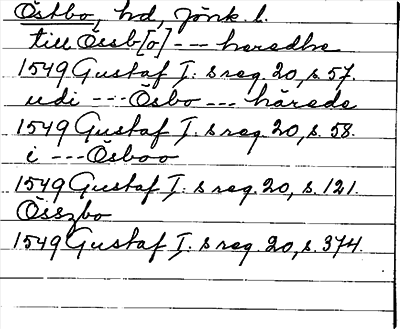 Östbo, hd, Jönk. l.
till Össb[o] --- heredhe
1549 Gustaf I: s reg. 20, s. 57.
udi --- Ösbo --- härede
1549 Gustaf I: s reg. 20, s. 58.
i --- Ösboo
1549 Gustaf I: s reg. 20, s. 121.
Összbo
1549 Gustaf I: s reg. 20, s. 374.